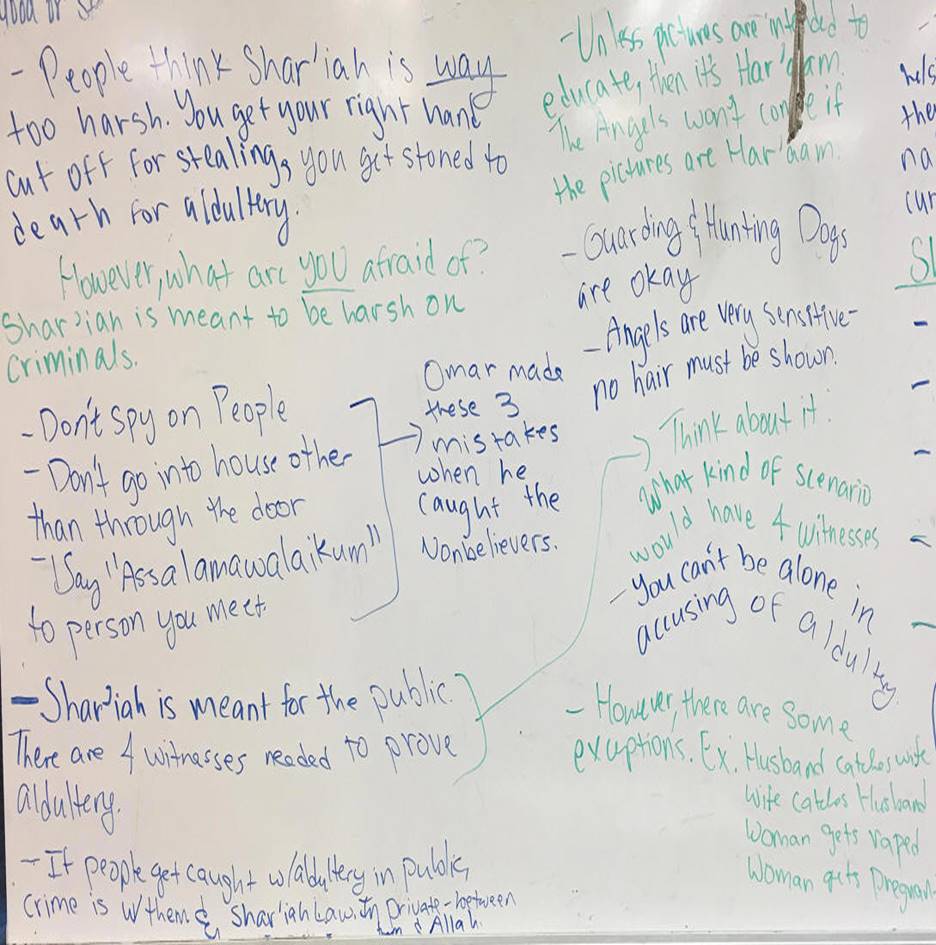 - People think Shar'iah is way
too harsh. You get your right hand
cut off for stealing, you get stoned to
death for aldultery.
However, what are YOU afraid of?
Shar'iah is meant to be harsh on
criminals.
- Don't spy on People
- Don't go into house other
than through the door
- Say "Assalamawalaikum"
to person you meet
Omar made
these 3
mistakes
when he
caught the
Nonbelievers.
- Shar'iah is meant for the public.
There are 4 witnesses needed to prove
aldultery.
- If people get caught w/aldultery in public,
crime is w/them & Shar'iah Law. In private - between
them & Allah.
- Unless pictures are intended to
educate, then it's Har'aam.
The Angels won't come if
the pictures are Har'aam.
- Guarding & Hunting Dogs
are okay
- Angels are very sensitive-
no hair must be shown.
Think about it:
What kind of scenario
would have 4 witnesses
- You can't be alone in
accusing of aldultery.
- However, there are some
exceptions. Ex: Husband catches wife
wife catches Husband
Woman gets raped
Woman gets Pregnan
the
na